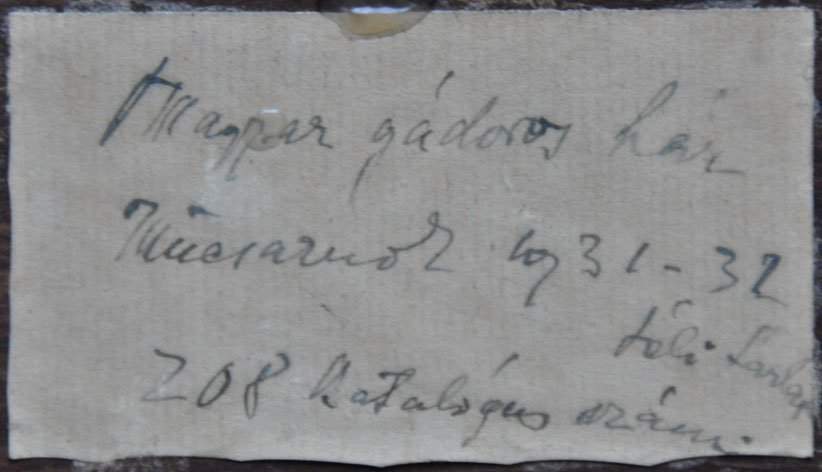 Magyar gádoros ház
Műcsarnok 1931-32
téli tárlat
208 katalógus szám.